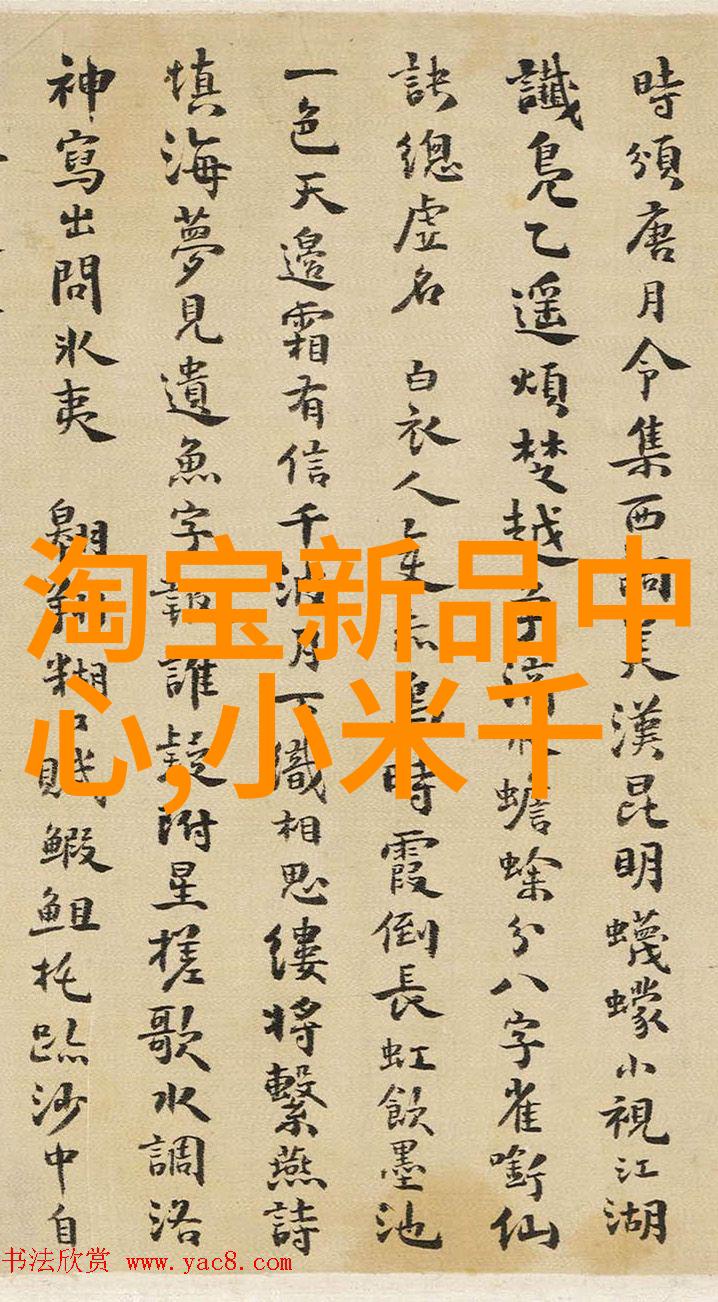 時頒唐月令集西美漢昆明蠛蠓小視江湖
讖鳧乙遥煩楚越蟾蜍分八字雀銜仙
訣總虚名 白衣人烏時霞倒長虹飲墨池
一色天邊霜有信千波月下織相思縷將繫燕詩
填海夢見遺魚字報誰疑附星槎歌水調洛
神寫出問冰夷 翱翔糊口賤鰕托跡沙中自
淘宝新品中
心,小米千
书法欣赏 www.yac8.com